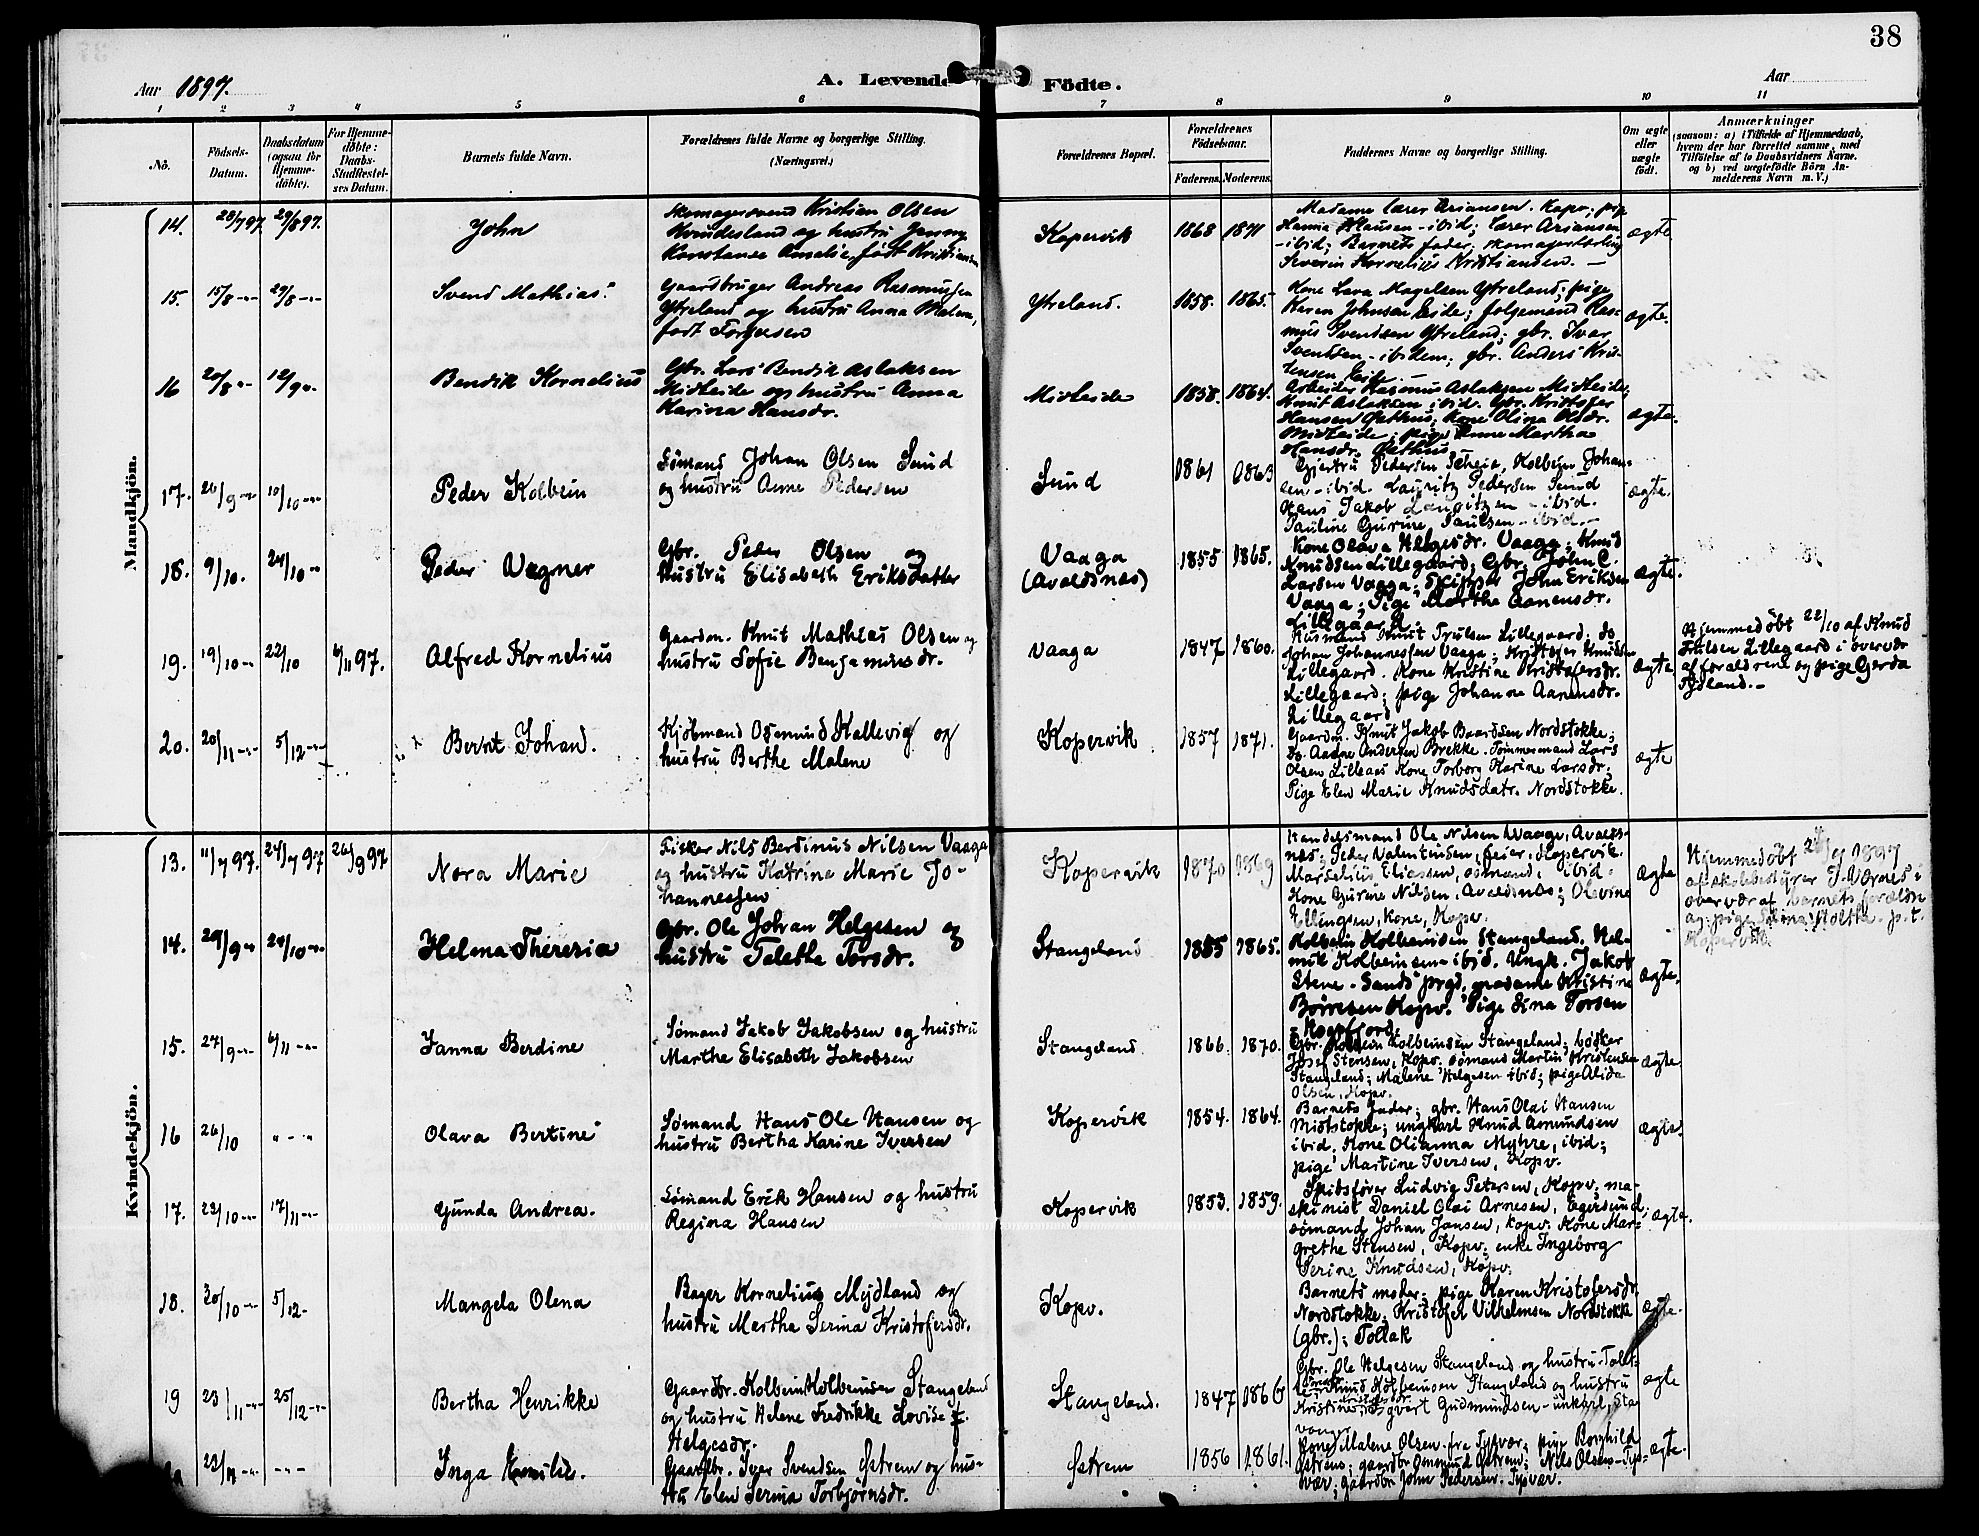 38
Aar 1897.
A. Levende Födte.
Aar
1 2 3 4 5 6 7 8 9 10 11
No.
Födsels-Datum.
Daabsdatum (ogsaa for Hjemme-döbte).
For Hjemme-döbte: Daabs-Stadfæstel-ses Datum.
Barnets fulde Navn.
Forældrenes fulde Navne og borgerlige Stilling. (Næringsvei.)
Forældrenes Bopæl.
Forældrenes Födselsaar.
Faderens. Moderens.
Faddernes Navne og borgerlige Stilling.
Om ægte eller uægte födt.
Anmærkninger
(saasom: a) i Tilfælde af Hjemmedaab, hvem der har forrettet samme, med Tilföielse af to Daabsvidners Navne. og b) ved uægtefödte Börn An-melderens Navn m. V.)
Mandkjön.
14. 28/7 97. 29/8 97. John
Skomagersvend Kristian Olsen
Kvindesland og hustru Jenny
Konstanse Amalie, født Kristiansen
Kopervik 1868 1871
Madame Lærer Ariansen. Kopv; pige
Hanna Hausen - ibid; Lærer Ariansen
- ibid; Barnets fader; skomagerlærling
Severin Kornelius Kristiansen. -
ægte
15. 15/8 -"- 29/8 -"- Svend Mathias.
Gaardbruger Andreas Rasmussen
Ytreland og hustru Anna Malene,
født Torgersen
Ytreland. 1858. 1865.
Kone Lava Magelsen Ytreland; pige
Karen Johnsen Eide; følgemand Ras-
mus Svendsen Ytreland; gbr. Ivar
Svendsen - ibidem; gbr. Anders Kris-
tensen Eide. -
ægte.
16 20/8 -"- 12/9 -"- Bendik Kornelius
Gbr. Lars Bendik Aslaksen
Midteide og hustru Anna
Karina Hansdr.
Midteide 1858. 1864.
Arbeider Rasmus Aslaksen Midteide;
Knut Aslaksen ibid. Gbr. Kristofer
Hansen Østhus; Kone Olina Olsdr.
Midteide; pige Anne Martha
Hansdr. Østhus
ægte.
17. 20/9 -"- 10/10 -"- Peder Kolbein
Sømand Johan Olsen Sund
og hustru Anne Pedersen
Sund 1861 1863
Gjertru Pedersen Scheie, Kolbein Johan-
sen - ibid. Lauritz Pedersen Sund
Hans Jakob Lauritzen - ibid.
Pauline Gurine Paulsen - ibid. -
ægte.
18. 9/10. 24/10 -"- Peder Vagner
Gbr. Peder Olsen og
hustru Elisabeth Eriksdatter
Vaaga
(Avaldsnæs) 1855 1865.
Kone Olava Helgesdr. Vaaga; Knud
Knudsen Lillegaard; Gbr. John C.
Larsen Vaaga; Skipper John Eriksen
Vaaga; Pige Marthe Aanensdr.
Lillegaard.
ægte.
19. 19/10 -"- 22/10 6/11 97. Alfred Kornelius
Gaardm. Knut Mathias Olsen og
hustru Sofie Benjaminsdr.
Vaaga 1847 1860.
Husmand Knut Tjulsen Lillegaard; do
Johan Johannessen Vaaga; Kristofer Knudsen
Lillegaard. Kone Kristine Kristofersdr.
Lillegaard; pige Johanne Aanensdr.
Lillegaard
ægte
Hjemmedøbt 22/10 af Knud
Tjulsen Lillegaard i overvær
af forældrene og pige Gerda
Sydland. -
20. 20/11 -"- 5/12 -"- Bernt Johan.
Kjøbmand Osmund Hallevig og
hustru Berthe Malene
Kopervik 1857 1871.
Gaardm. Knut Jakob Baardsen Nordstokke;
do. Aanne Andersen Brekke. Tømmermand Lars
Olsen Lilleaas Kone Torborg Karine Larsdr;
Pige Elen Marie Knudsdatr. Nordstokke.
ægte
Kvindekjön.
13. 11/7 97. 24/7 97 26/9 97 Nora Marie
Fisker Nils Berdinus Nilsen Vaaga
og hustru Katrine Marie Jo-
hannessen
Kopervik 1870 1869
Handelsmand Ole Nilsen Vaage, Avalds-
nes; Peder Valentinsen, feier, Kopervik.
Marselius Eliassen, sømand, ibid-
Kone Gurine Nilsen, Avaldsnæs; Olevine
Ellingsen, Kone, Kopv.
ægte
Hjemmedøbt 1897
af skolebestyrer J. Værnes i
overvær af barnets forældre
og pige p.t.
Kopervik.
14. 29/9 -"- 24/10 -"- Helma Theresia
Gbr. Ole Johan Helgesen og
hustru Taletha Torsdr.
Stangeland 1855 1865.
Kolbein Kolbeinsen Stangeland. Hel-
mik Kolbeinsen - ibid. Ungk. Jakob
Stene - Sands prgd, madame Kristine
Børresen Kopv. Pige Lina Torsen
-
ægte.
15. 27/9 -"- 6/11 -"- Janna Berdine
Sømand Jakob Jakobsen og hustru
Marthe Elisabeth Jakobsen
Stangeland. 1866. 1870.
Gbr. Kolbein Kolbeinsen Stangeland; bøsker
Josef Stensen, Kopv. sømand Martin Kristensen
Stangeland; Malene Helgesen ibid; pige Alida
Olsen, Kopv.
ægte.
16 26/10 " - " Olava Bertine
Sømand Hans Ole Hansen og
hustru Bertha Karine Iversen
Kopervik 1854. 1864.
Barnets fader; gbr. Hans Olai Hansen
Midtstokke; ungkarl Knud Amundsen
ibid. Kone Olianna Myhre, ibid;
pige Martine Iversen, Kopv.
ægte.
17. 22/10 -"- 17/11 -"- Gunda Andrea.
Sømand Erik Hansen og hustru
Regina Hansen
Kopervik 1853. 1859.
Skibsfører Ludvig Petersen, Kopv; ma-
skinist Daniel Olai Arnesen, Egersund;
sømand Johan Jansen, Kopv. Kone Mar-
grethe Stensen, Kopv; enke Ingeborg
Serine Knudsen, Kopv.
ægte.
18. 30/10 -"- 5/12 - Mangela Olena
Bager Kornelius Mydland og
hustru Martha Serina Kristofersdr.
Kopv.
Barnets moder; pige Karen Kristofersdr
Nordstokke; Kristofer Vilhelmsen Nordstokke
(gbr.); Tollak
ægte.
19 23/11 -"- 25/12 -"- Bertha Henrikke
Gaardbr. Kolbein Kolbeinsen Stangeland
og hustru Helene Fredrikke Lovise f.
Helgesdr.
Stangeland. 1847 1866
Gbr. Ole Helgesen Stangeland og hustru Tolet-
Knud Kolbeinsen Stangeland og hustru
Kristine; Sigvart Gudmundsen - unkarl, Sta
vanger
ægte
23/11 -"- - " - Inga Emilie.
Gaardbr. Iver Svendsen Østrem og hus-
tru Elen Serina Torbjørnsdr.
Østrem 1856 1861.
Kone Malene Olsen fra Tysvær; pige Borghild
Østrem; gaardbr Osmund Østrem; Nils Olsen - Tys-
vær; gaardbr John Pedersen. Tysvær.
ægte.